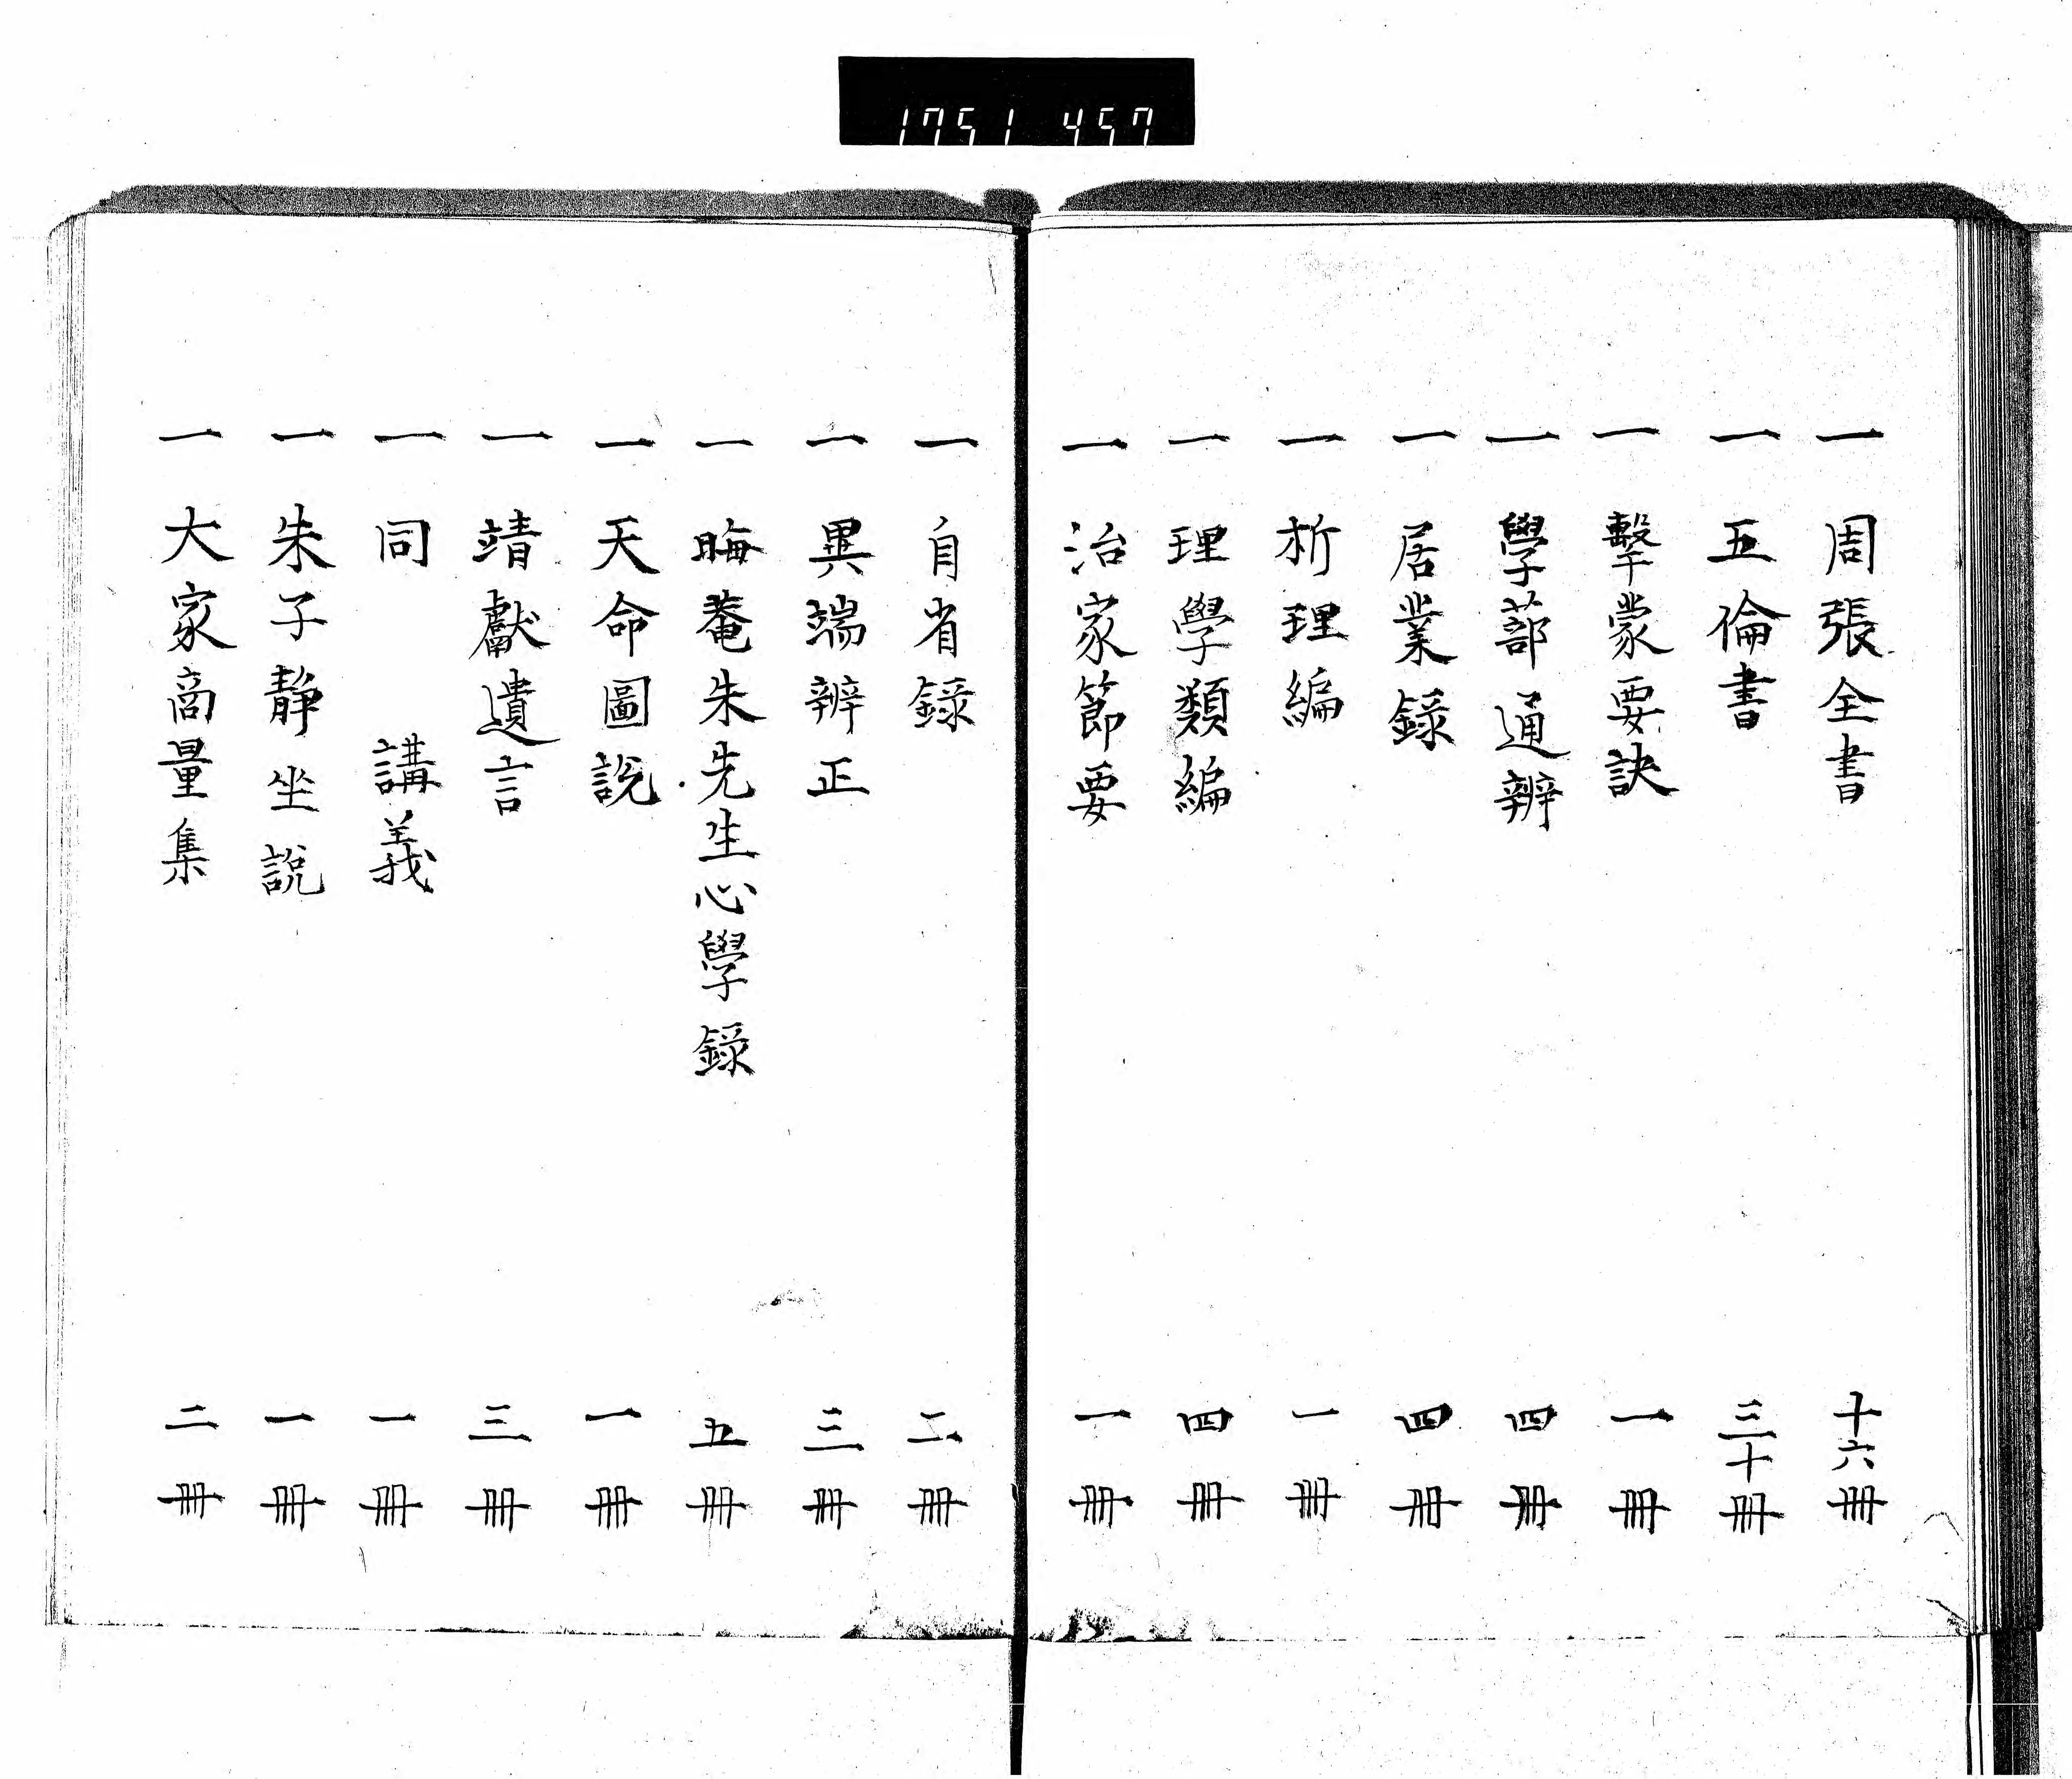 1751 457
一 周張全書 十六冊
一 五倫書 三十冊
一 擊蒙要訣 一冊
一 學蔀通辨 四冊
一 居業録 四冊
一 析理編 一冊
一 理學類編 四冊
一 治家節要 一冊
一 自省録 二冊
一 異端辨正 三冊
一 晦菴朱先生心學録 五冊
一 天命圖説 一冊
一 靖獻遺言 三冊
一 同 講義 一冊
一 朱子靜坐說 一冊
一 大家商量集 二冊